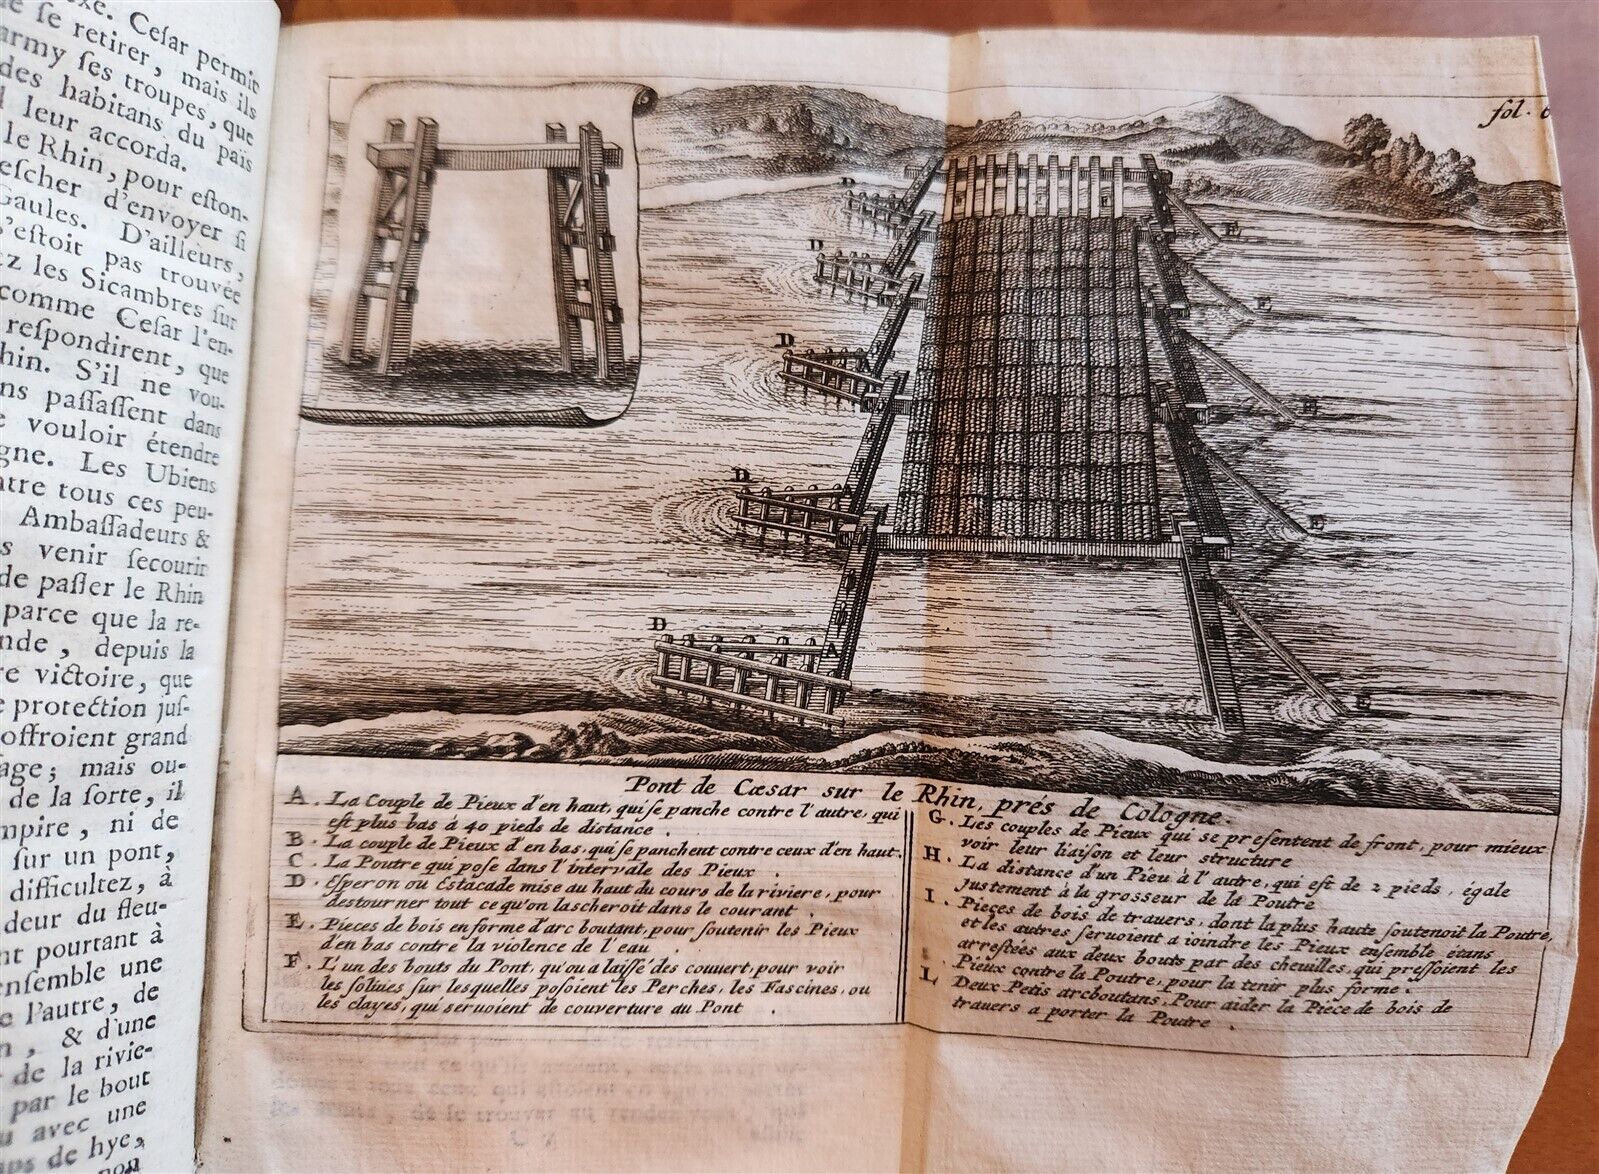 exe. Cesar permit
se retirer, mais ils
army ses troupes, que
des habitans du païs
leur accorda.
le Rhin, pour eston-
escher d'envoyer si
Gaules. D'ailleurs,
s'estoit pas trouvée
ez les Sicambres sur
comme Cesar l'en-
respondirent, que
hin. S'il ne vou-
ns passassent dans
vouloir étendre
gne. Les Ubiens
ntre tous ces peu-
Ambassadeurs &
s venir secourir
de passer le Rhin
parce que la re-
nde, depuis la
re victoire, que
protection jus-
offroient grand
age; mais ou-
de la sorte, il
mpire, ni de
sur un pont,
difficultez, à
deur du fleu-
nt pourtant à
ensemble une
l'autre, de
, & d'une
de la rivie-
par le bout
avec une
ps de hye,
non
fol. 6
D
D
D
D
D
A
E
E
Pont de Cæsar sur le Rhin, prés de Cologne.
A. La Couple de Pieux d'en haut, qui se panche contre l'autre, qui
est plus bas à 40 pieds de distance.
B. La couple de Pieux d'en bas, qui se panchent contre ceux d'en haut.
C. La Poutre qui pose dans l'intervale des Pieux.
D. Esperon ou Estacade mise au haut du cours de la riviere, pour
destourner tout ce qu'on lascheroit dans le courant.
E. Pieces de bois en forme d'arc boutant, pour soutenir les Pieux
d'en bas contre la violence de l'eau.
F. L'un des bouts du Pont, qu'ou a laissé des couuert, pour voir
les soliues sur lesquelles posoient les Perches, les Fascines, ou
les clayes, qui seruoient de couverture au Pont.
G. Les couples de Pieux qui se presentent de front, pour mieux
voir leur liaison et leur structure
H. La distance d'un Pieu à l'autre, qui est de 2 pieds, égale
justement à la grosseur de la Poutre
I. Pieces de bois de trauers, dont la plus haute soutenoit la Poutre,
et les autres seruoient a ioindre les Pieux ensemble étans
arrestées aux deux bouts par des cheuilles, qui pressoient les
Pieux contre la Poutre, pour la tenir plus forme.
L Deux Petis arcboutans, Pour aider la Piece de bois de
trauers a porter la Poutre.